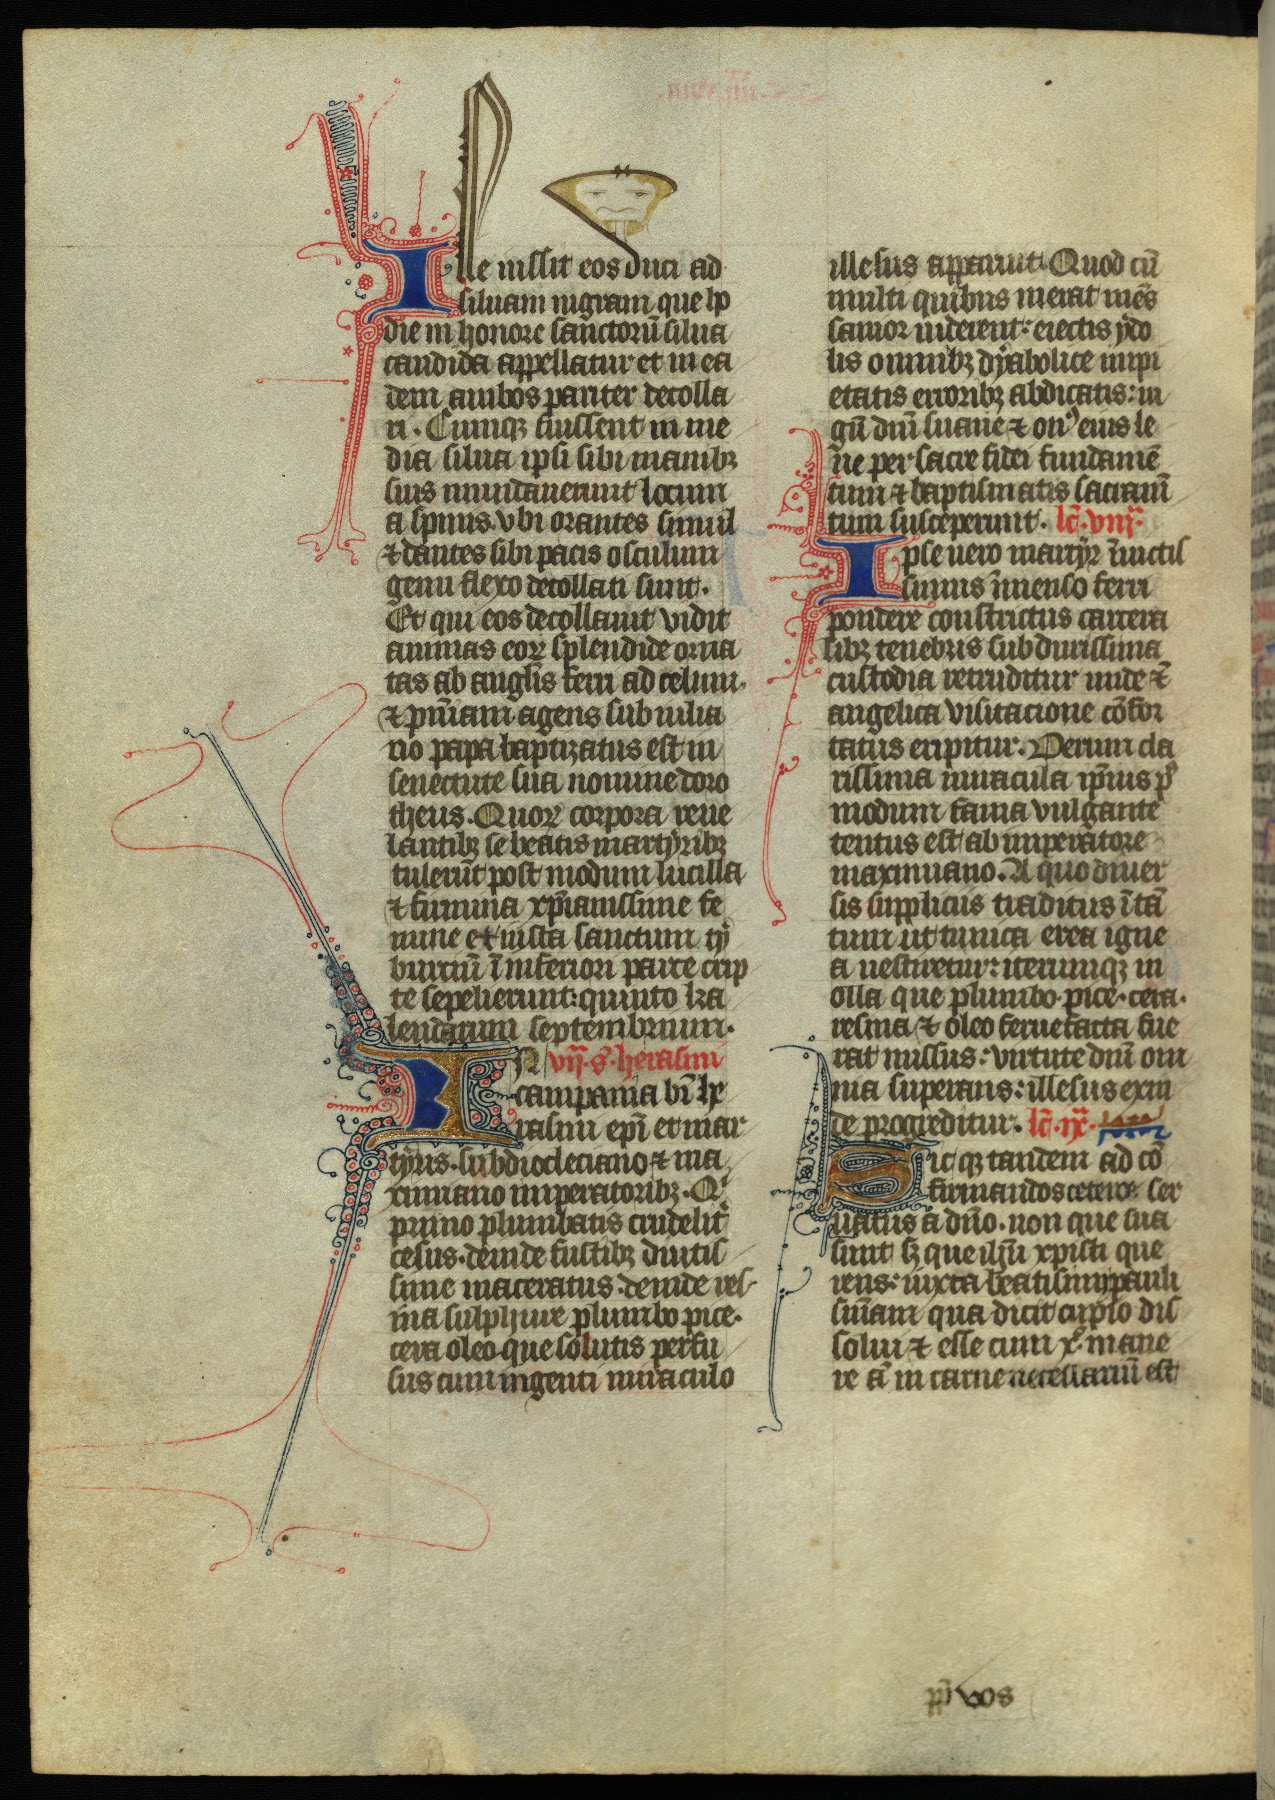 Ille iussit eos duci ad
siluam nigram que ho
die in honore sanctorū silua
candida appellatur et in ea
dem ambos pariter decolla
ri. Cumqꝫ fuissent in me
dia silua ipsi sibi manibꝫ
suis mundauerunt locum
a spinis. vbi orantes simul
⁊ dantes sibi pacis osculum
genu flexo decollati sunt.
Et qui eos decollauit vidit
animas eoꝝ splendide orna
tas ab anglis ferri ad celum.
⁊ pn̄iam agens sub iulia
no papa baptizatus est in
senectute sua nomine doro
theus. Quoꝝ corpora reue
lantibꝫ se beatis martyribꝫ
tulerūt post modum lucilla
⁊ firmina xp̄ianissime fe
mine et iuxta sanctum ty
burciū ī inferiori parte crip
te sepelierunt: quinto ka
lendarum septembrium.
IN vij. s. herasmi
campania bī he
rasmi epī et mar
tyris. sub diocleciano ⁊ ma
ximiano imperatoribꝫ. Qi
primo plumbatis crudelit̉
cesus. deinde fustibꝫ diutis
sime maceratus. deinde res
ina sulphure plumbo pice.
cera oleo que solutis perfu
sus cum ingenti miraculo
illesus apparuit. Quod cū
multi quibus inerat mēs
sanior uiderent: eiectis ydo
lis omnibꝫ dyabolice impi
etatis erroribꝫ abdicatis: iu
gū dn̄i suaue ⁊ on̉ eius le
ue per sacre fidei fundamē
tum ⁊ baptismatis sacram̄
tum susceperunt. lc̄. viij.
Ipse uero martyr īuictis
simus īmenso ferri
pondere constrictus carcera
libꝫ tenebris sub durissima
custodia retruditur unde ⁊
angelica visitacione cōfor
tatus eripitur. Verum cla
rissima miracula ip̄ius ꝓ
modum fama vulgante
tentus est ab imperatore
maximiano. A quo diuer
sis suppliciis traditus ītā
tum ut tunica erea igne
a uestiretur: iterumqꝫ in
olla que plumbo. pice. cera.
resina ⁊ oleo feruefacta fue
rat missus: virtute dn̄i om
nia superans: illesus exin
de progreditur. lc̄. ix.
Sicqꝫ tandem ad cō
firmandos ceteros ser
uatus a dn̄o. non que sua
sunt sꝫ que ihū xpisti que
rens: iuxta beatissimi pauli
sn̄iam qua dicit cupio dis
solui ⁊ esse cum x̄. mane
re āt in carne necessariū est
pp̄ vos